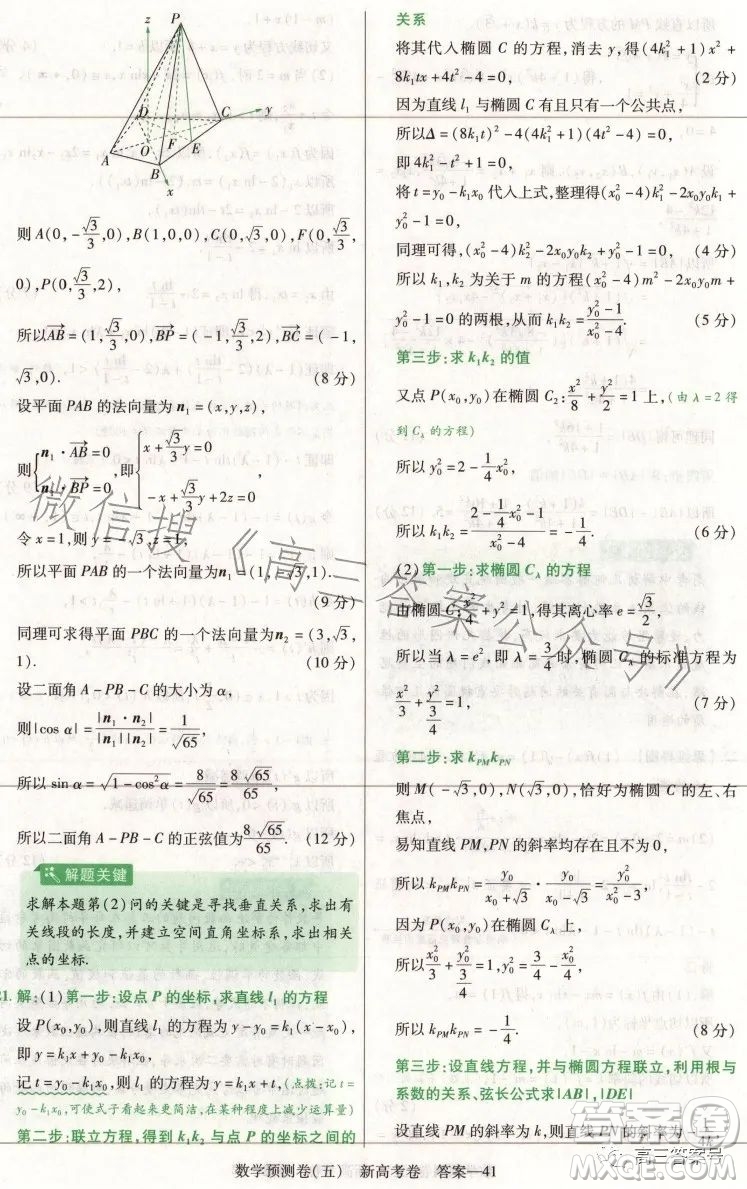 z
P
D
C
y
O
F
E
A
B
x
则 A(0,-√3/3,0),B(1,0,0),C(0,√3,0),F(0,√3/3,
0),P(0,√3/3,2),
所以AB=(1,√3/3,0),BP=(-1,√3/3,2),BC=(-1,
√3,0). (8 分)
设平面 PAB 的法向量为 n₁=(x,y,z),
则{n₁·AB=0 n₁·BP=0,即{x+√3/3y=0 -x+√3/3y+2z=0
令 x=1,则 y=-√3,z=1.
所以平面 PAB 的一个法向量为 n₁=(1,-√3,1).
(9 分)
同理可求得平面 PBC 的一个法向量为 n₂=(3,√3,
1). (10 分)
设二面角 A-PB-C 的大小为 α,
则|cos α|=|n₁·n₂|/|n₁||n₂|=1/√65,
所以 sin α=√1-cos²α=8/√65=8√65/65,
所以二面角 A-PB-C 的正弦值为8√65/65. (12 分)
解题关键
求解本题第(2)问的关键是寻找垂直关系,求出有
关线段的长度,并建立空间直角坐标系,求出相关
点的坐标.
21. 解:(1)第一步:设点 P 的坐标,求直线 l₁ 的方程
设 P(x₀,y₀),则直线 l₁ 的方程为 y-y₀=k₁(x-x₀),
即 y=k₁x+y₀-k₁x₀,
记 t=y₀-k₁x₀,则 l₁ 的方程为 y=k₁x+t,(点拨:记 t=
y₀-k₁x₀,可使式子看起来更简洁,在某种程度上减少运算量)
第二步:联立方程,得到 k₁k₂ 与点 P 的坐标之间的
关系
将其代入椭圆 C 的方程,消去 y,得(4k₁²+1)x²+
8k₁tx+4t²-4=0, (2 分)
因为直线 l₁ 与椭圆 C 有且只有一个公共点,
所以Δ=(8k₁t)²-4(4k₁²+1)(4t²-4)=0,
即 4k₁²-t²+1=0,
将 t=y₀-k₁x₀ 代入上式,整理得(x₀²-4)k₁²-2x₀y₀k₁+
y₀²-1=0,
同理可得,(x₀²-4)k₂²-2x₀y₀k₂+y₀²-1=0, (4 分)
所以 k₁,k₂ 为关于 m 的方程(x₀²-4)m²-2x₀y₀m+
y₀²-1=0 的两根,从而 k₁k₂=y₀²-1/x₀²-4. (5 分)
第三步:求 k₁k₂ 的值
又点 P(x₀,y₀)在椭圆 C₂:x²/8+y²/2=1 上,(由 λ=2 得
到 Cλ 的方程)
所以 y₀²=2-1/4x₀²,
所以 k₁k₂=2-1/4x₀²-1/x₀²-4=-1/4. (6 分)
(2)第一步:求椭圆 Cλ 的方程
由椭圆 C:x²/4+y²=1,得其离心率 e=√3/2,
所以当 λ=e²,即 λ=3/4时,椭圆 Cλ 的标准方程为
x²/3+y²/3/4=1. (7 分)
第二步:求 kPMkPN
则 M(-√3,0),N(√3,0),恰好为椭圆 C 的左、右
焦点,
易知直线 PM,PN 的斜率均存在且不为 0,
所以 kPMkPN=y₀/x₀+√3·y₀/x₀-√3=y₀²/x₀²-3.
因为 P(x₀,y₀)在椭圆 Cλ 上,
所以x₀²/3+y₀²/3/4=1,
所以 kPMkPN=-1/4. (8 分)
第三步:设直线方程,并与椭圆方程联立,利用根与
系数的关系、弦长公式求|AB|,|DE|
设直线 PM 的斜率为 k,则直线 PN 的斜率为-1/4k
数学预测卷(五) 新高考卷 答案—41
微信搜《高三答案公众号》
答案圈
高三答案号